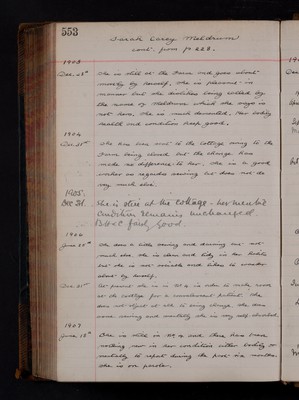 553
Sarah Carey Meldrum
cont. from p. 228.
1903
Dec. 25th She is still at the Farm and goes about
mostly by herself. She is pleasant in
manner but she dislikes being called by
the name of Meldrum which she says is
not hers. She is much demented. Her bodily
health and condition keep good.
1904
Dec. 31st She has come over to the cottage owing to the
Farm being closed but the change has
made no difference to her. She is a good
worker as regards sewing but does not do
very much else.
1905.
Dec 31. She is still at the cottage - her mental
Condition remains unchanged.
B.H & C fairly good.
1906
June 20th She does a little sewing and darning but not
much else. She is clean and tidy in her habits
but she is not sociable and likes to wander
about by herself.
Dec. 31st At present she is in No 4 in order to make room
at the cottage for a convalescent patient. She
does not object at all to being changed. She does
some sewing and mentally she is very self absorbed.
1907
June 15th She is still in No 4 and there has been
nothing new in her condition either bodily or
mentally to report during the past six months.
She is on parole.